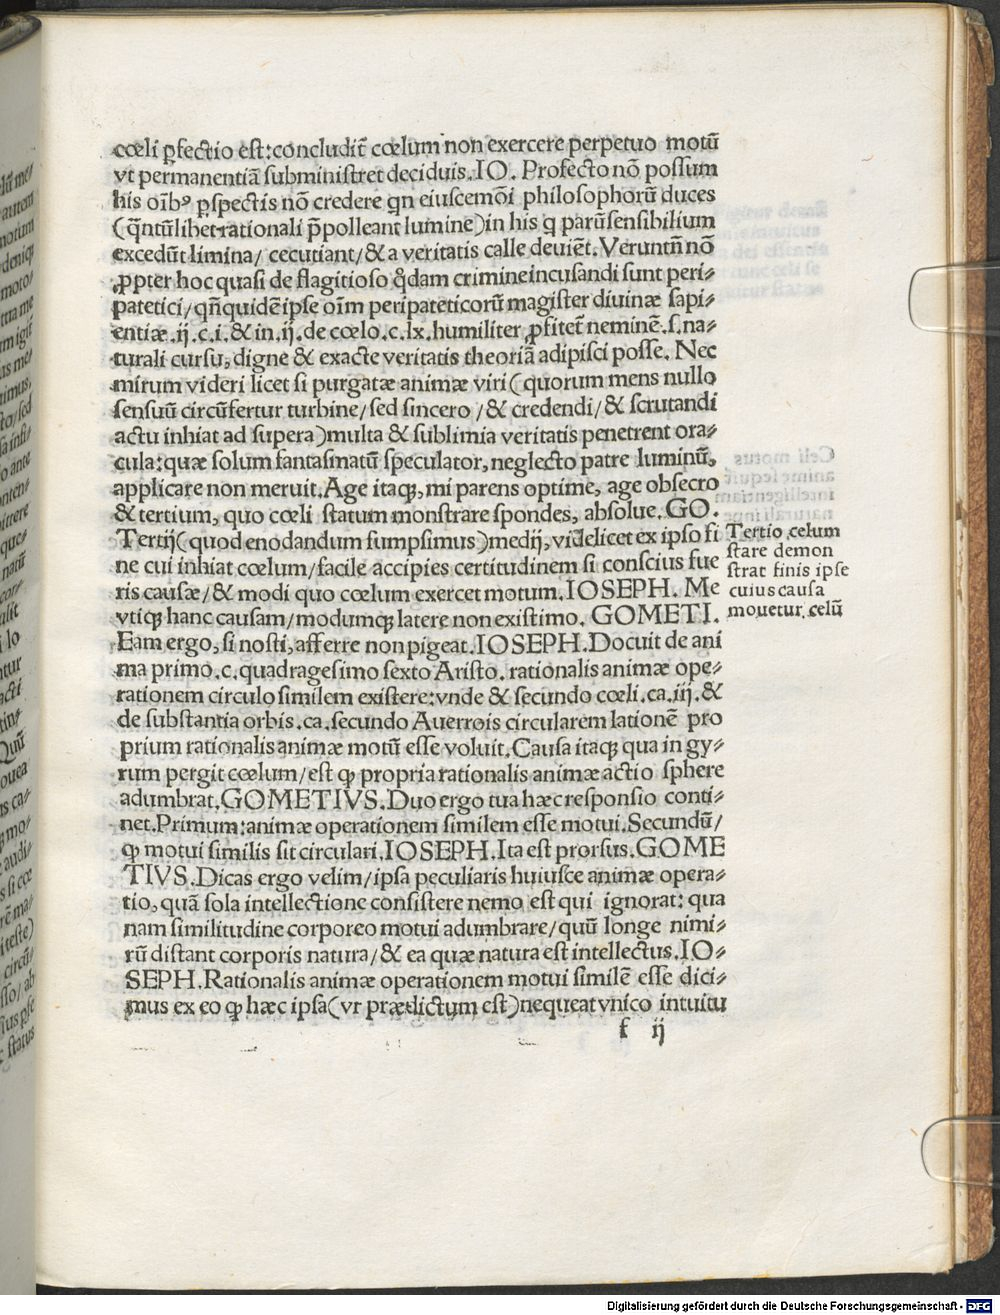 cœli ꝑfectio est:concludit̃ cœlum non exercere perpetuo motũ
vt permanentiã subministret deciduis.IO. Profecto nõ possum
his oĩbꝰ ꝑspectis nõ credere qn eiuscemõi philosophorũ duces
(q̃ntũlibet rationali p̃polleant lumine)in his q parũ sensibilium
excedũt limina/ cecutiant/& a veritatis calle deuiẽt. Veruntñ nõ
ꝓpter hoc quasi de flagitioso q̊dam crimine incusandi sunt peri⸗
patetici/ qñquidẽ ipse oĩm peripateticorũ magister diuinæ sapi⸗
entiæ .ij.c.i.& in.ij.de cœlo.c.lx.humiliter ꝓfitet̃ neminẽ.s.na⸗
turali cursu, digne & exacte veritatis theoriã adipisci posse. Nec
mirum videri licet si purgatæ animæ viri(quorum mens nullo
sensuũ circũfertur turbine/sed sincero /& credendi/& scrutandi
actu inhiat ad supera)multa & sublimia veritatis penetrent ora⸗
cula:quæ solum fantasmatũ speculator, neglecto patre luminũ,
applicare non meruit. Age itaqꝫ, mi parens optime, age obsecro
& tertium, quo cœli statum monstrare spondes, absolue. GO.
Tertij(quod enodandum sumpsimus)medij, videlicet ex ipso fi
ne cui inhiat cœlum/facile accipies certitudinem si conscius fue
ris causæ/& modi quo cœlum exercet motum. IOSEPH. Me
vtiqꝫ hanc causam/modumqꝫ latere non existimo. GOMETI.
Eam ergo, si nosti, afferre non pigeat. IOSEPH. Docuit de ani
ma primo.c.quadragesimo sexto Aristo. rationalis animæ ope⸗
rationem circulo similem existere:vnde & secundo cœli.ca.iij.&
de substantia orbis.ca.secundo Auerrois circularem lationẽ pro
prium rationalis animæ motũ esse voluit. Causa itaqꝫ qua in gy⸗
rum pergit cœlum/est ꝙ propria rationalis animæ actio sphere
adumbrat. GOMETIVS. Duo ergo tua hæc responsio conti⸗
net. Primum: animæ operationem similem esse motui. Secundũ/
ꝙ motui similis sit circulari. IOSEPH. Ita est prorsus. GOME
TIVS. Dicas ergo velim/ipsa peculiaris huiusce animæ opera⸗
tio, quã sola intellectione consistere nemo est qui ignorat: qua
nam similitudine corporeo motui adumbrare/quũ longe nimi⸗
rũ distant corporis natura/& ea quæ natura est intellectus. IO⸗
SEPH. Rationalis animæ operationem motui similẽ esse dici⸗
mus ex eo ꝙ hæc ipsa(vt prædictum est)nequeat vnico intuitu
f ij
Tertio celum
stare demon
strat finis ipse
cuius causa
mouetur celũ
Digitalisierung gefördert durch die Deutsche Forschungsgemeinschaft - DFG